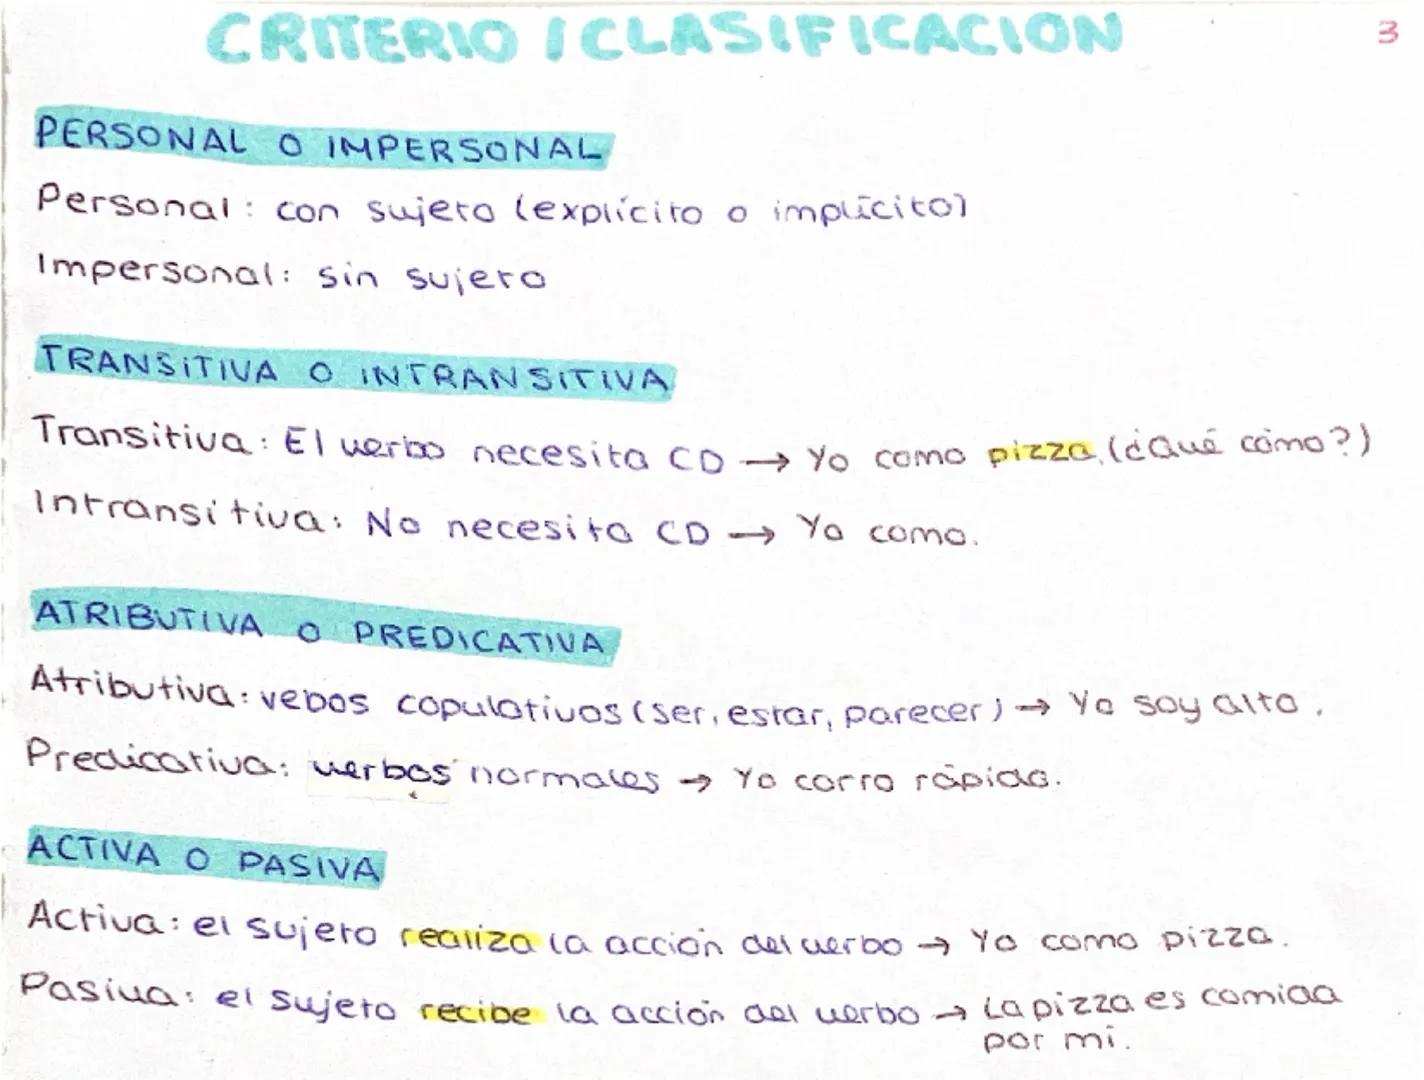 CRITERIO / CLASIFICACION
3
PERSONAL O IMPERSONAL
Personal: con sujeto (explícito o implícito)
Impersonal: sin sujeto
TRANSITIVA O INTRANSITIVA
Transitiva: El verbo necesita CD → Yo como pizza. (¿Qué como?)
Intransitiva: No necesita CD → Yo como.
ATRIBUTIVA O PREDICATIVA
Atributiva: vebos copulativos (ser, estar, parecer) → Yo soy alto.
Predicativa: verbos normales → Yo corro rápido.
ACTIVA O PASIVA
Activa: el sujeto realiza la acción del verbo → Yo como pizza.
Pasiva: el sujeto recibe la acción del verbo → La pizza es comida
por mí.